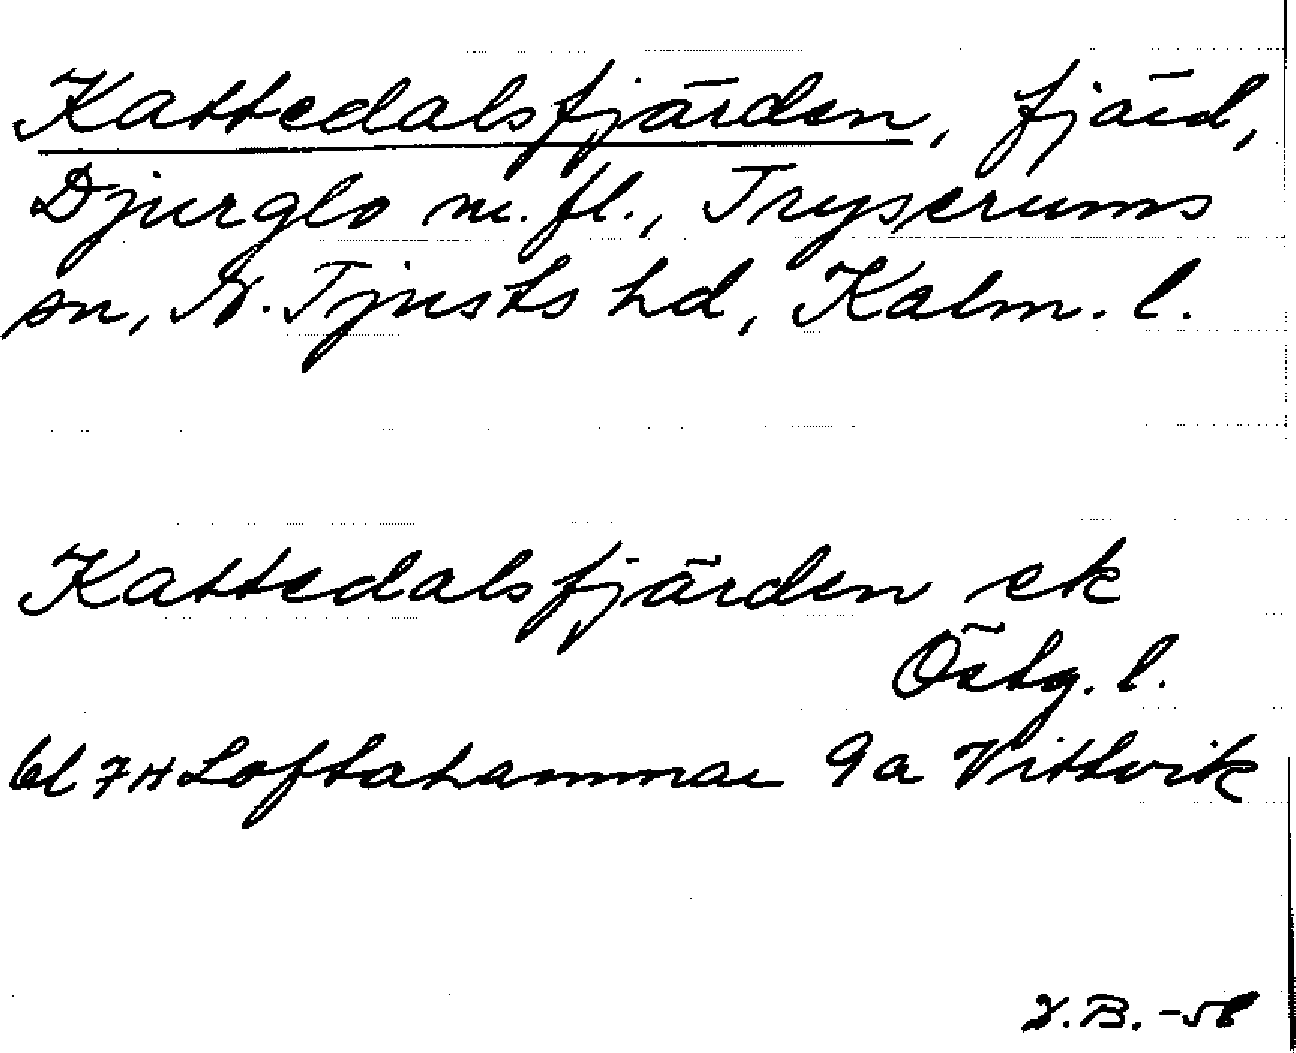 Kattedalsfjärden, fjärd,
Djurglo m. fl., Tryserums
sn, N. Tjusts hd, Kalm. l.
Kattedalsfjärden ek
Östg. l.
bl 7H Loftahammar 9a Vittvik
B. -58